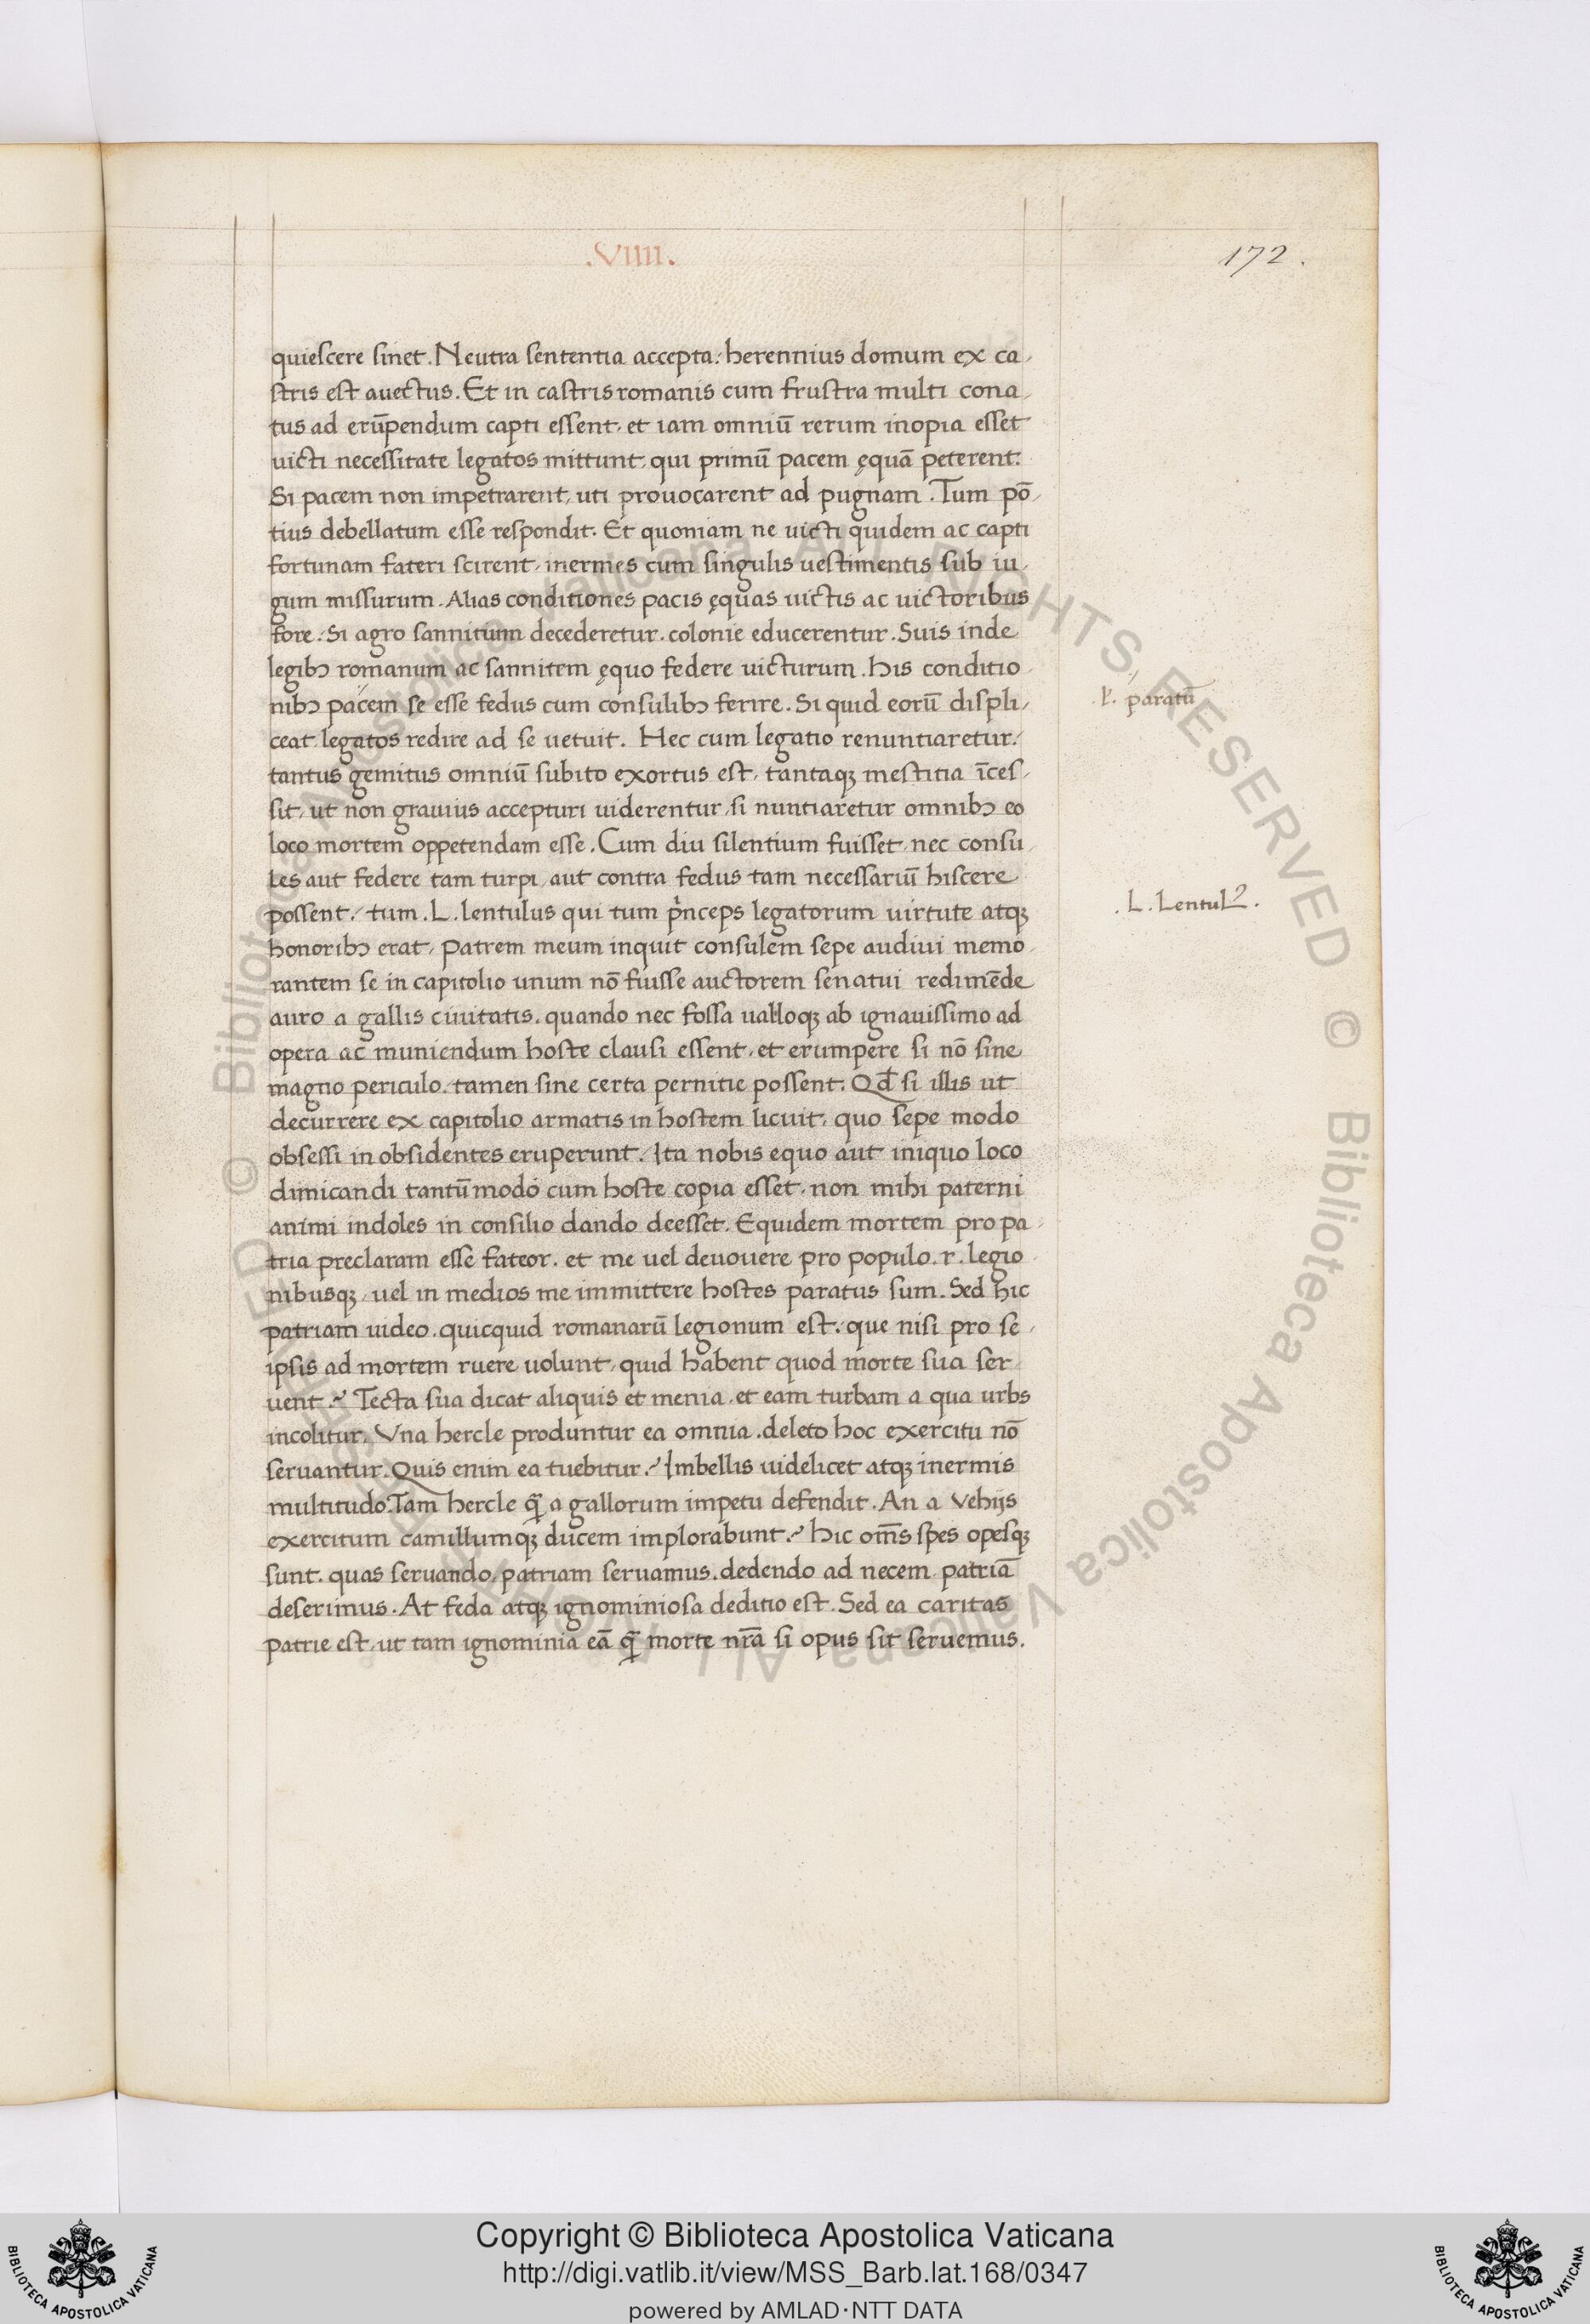 .VIIII.
172.
quiescere sinet. Neutra sententia accepta: herennius domum ex ca,
stris est auectus. Et in castris romanis cum frustra multi cona,
tus ad erūpendum capti essent, et iam omniū rerum inopia esset
uicti necessitate legatos mittunt, qui primū pacem ęquā peterent.
Si pacem non impetrarent, uti prouocarent ad pugnam. Tum pō,
tius debellatum esse respondit. Et quoniam ne uicti quidem ac capti
fortunam fateri scirent, inermes cum singulis uestimentis sub iu,
gum missurum. Alias conditiones pacis ęquas uictis ac uictoribus
fore. Si agro sannitum decederetur. colonie educerentur. Suis inde
legibꝫ romanum ac sannitem ęquo federe uicturum. His conditio
nibꝫ pacem se esse fedus cum consulibꝫ ferire. Si quid eorū displi,
.ł. paratū
ceat legatos redire ad se uetuit. Hec cum legatio renuntiaretur:
tantus gemitus omniū subito exortus est, tantaqꝫ mestitia īces,
sit, ut non grauius accepturi uiderentur, si nuntiaretur omnibꝫ eo
loco mortem oppetendam esse. Cum diu silentium fuisset, nec consu,
les aut federe tam turpi, aut contra fedus tam necessariū hiscere
possent: tum .L. lentulus qui tum pͥnceps legatorum uirtute atqꝫ
.L. Lentulꝰ.
honoribꝫ erat, Patrem meum inquit consulem sepe audiui memo,
rantem se in capitolio unum nō fuisse auctorem senatui redimēde
auro a gallis ciuitatis. quando nec fossa ualloqꝫ ab ignauissimo ad
opera ac muniendum hoste clausi essent, et erumpere si nō sine
magno periculo, tamen sine certa pernitie possent. Qđ si illis ut
decurrere ex capitolio armatis in hostem licuit, quo sepe modo
obsessi in obsidentes eruperunt. Ita nobis equo aut iniquo loco
dimicandi tantūmodo cum hoste copia esset, non mihi paterni
animi indoles in consilio dando deesset. Equidem mortem pro pa,
tria preclaram esse fateor. et me uel deuouere pro populo .r. legio
nibusqꝫ, uel in medios me immittere hostes paratus sum. Sed hic
patriam uideo. quicquid romanarū legionum est: que nisi pro se,
ipsis ad mortem ruere uolunt, quid habent quod morte sua ser,
uent? Tecta sua dicat aliquis et menia, et eam turbam a qua urbs
incolitur. Vna hercle produntur ea omnia. deleto hoc exercitu nō
seruantur. Quis enim ea tuebitur? Imbellis uidelicet atqꝫ inermis
multitudo. Tam hercle qꝫ̄ a gallorum impetu defendit. An a Vehijs
exercitum camillumqꝫ ducem implorabunt? Hic om̄s spes opesqꝫ
sunt. quas seruando, patriam seruamus. dedendo ad necem patriā
deserimus. At feda atqꝫ ignominiosa deditio est. Sed ea caritas
patrie est, ut tam ignominia eā qꝫ̄ morte nr̄a si opus sit seruemus.
© Biblioteca Apostolica Vaticana ALL RIGHTS RESERVED © Biblioteca Apostolica Vaticana ALL RIGHTS RESERVED
Copyright © Biblioteca Apostolica Vaticana
http://digi.vatlib.it/view/MSS_Barb.lat.168/0347
powered by AMLAD·NTT DATA
BIBLIOTECA APOSTOLICA VATICANA
BIBLIOTECA APOSTOLICA VATICANA